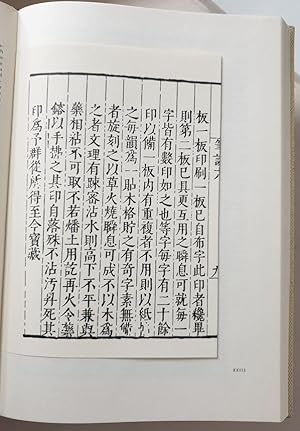 板一板印刷一板已自布字此印者纔畢
則第二板已具更互用之瞬息可就每一
字皆有數印如之也等字每字有二十餘
印以備一板内有重複者不用則以紙貼
之每韻爲一貼木格貯之有奇字素無備
者旋刻之以草火燒瞬息可成不以木爲
之者文理有踈密沾水則高下不平兼與
藥相沾不可取不若燔土用訖再火令藥
鎔以手拂之其印自落殊不沾汚昇死其
印爲予群從所得至今寳藏
筆談
九
XXIII